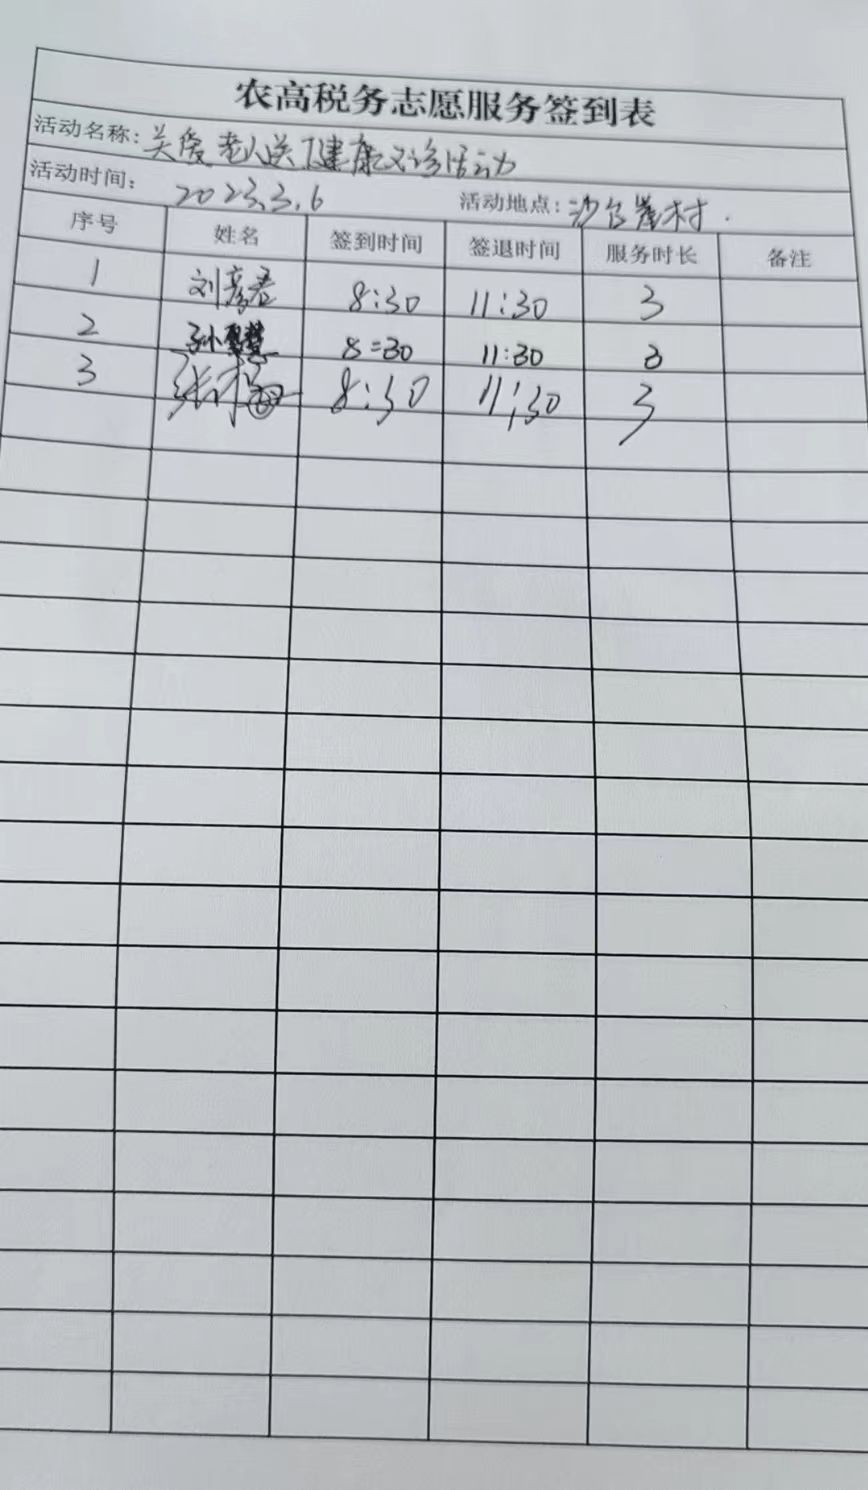 农高税务志愿服务签到表
活动名称：关爱老人送健康义诊活动
活动时间： 2023.3.6 活动地点：沙台崖村.
序号 姓名 签到时间 签退时间 服务时长 备注
1 刘彦君 8:30 11:30 3
2 孙慧 8=30 11:30 3
3 张 8:30 11:30 3